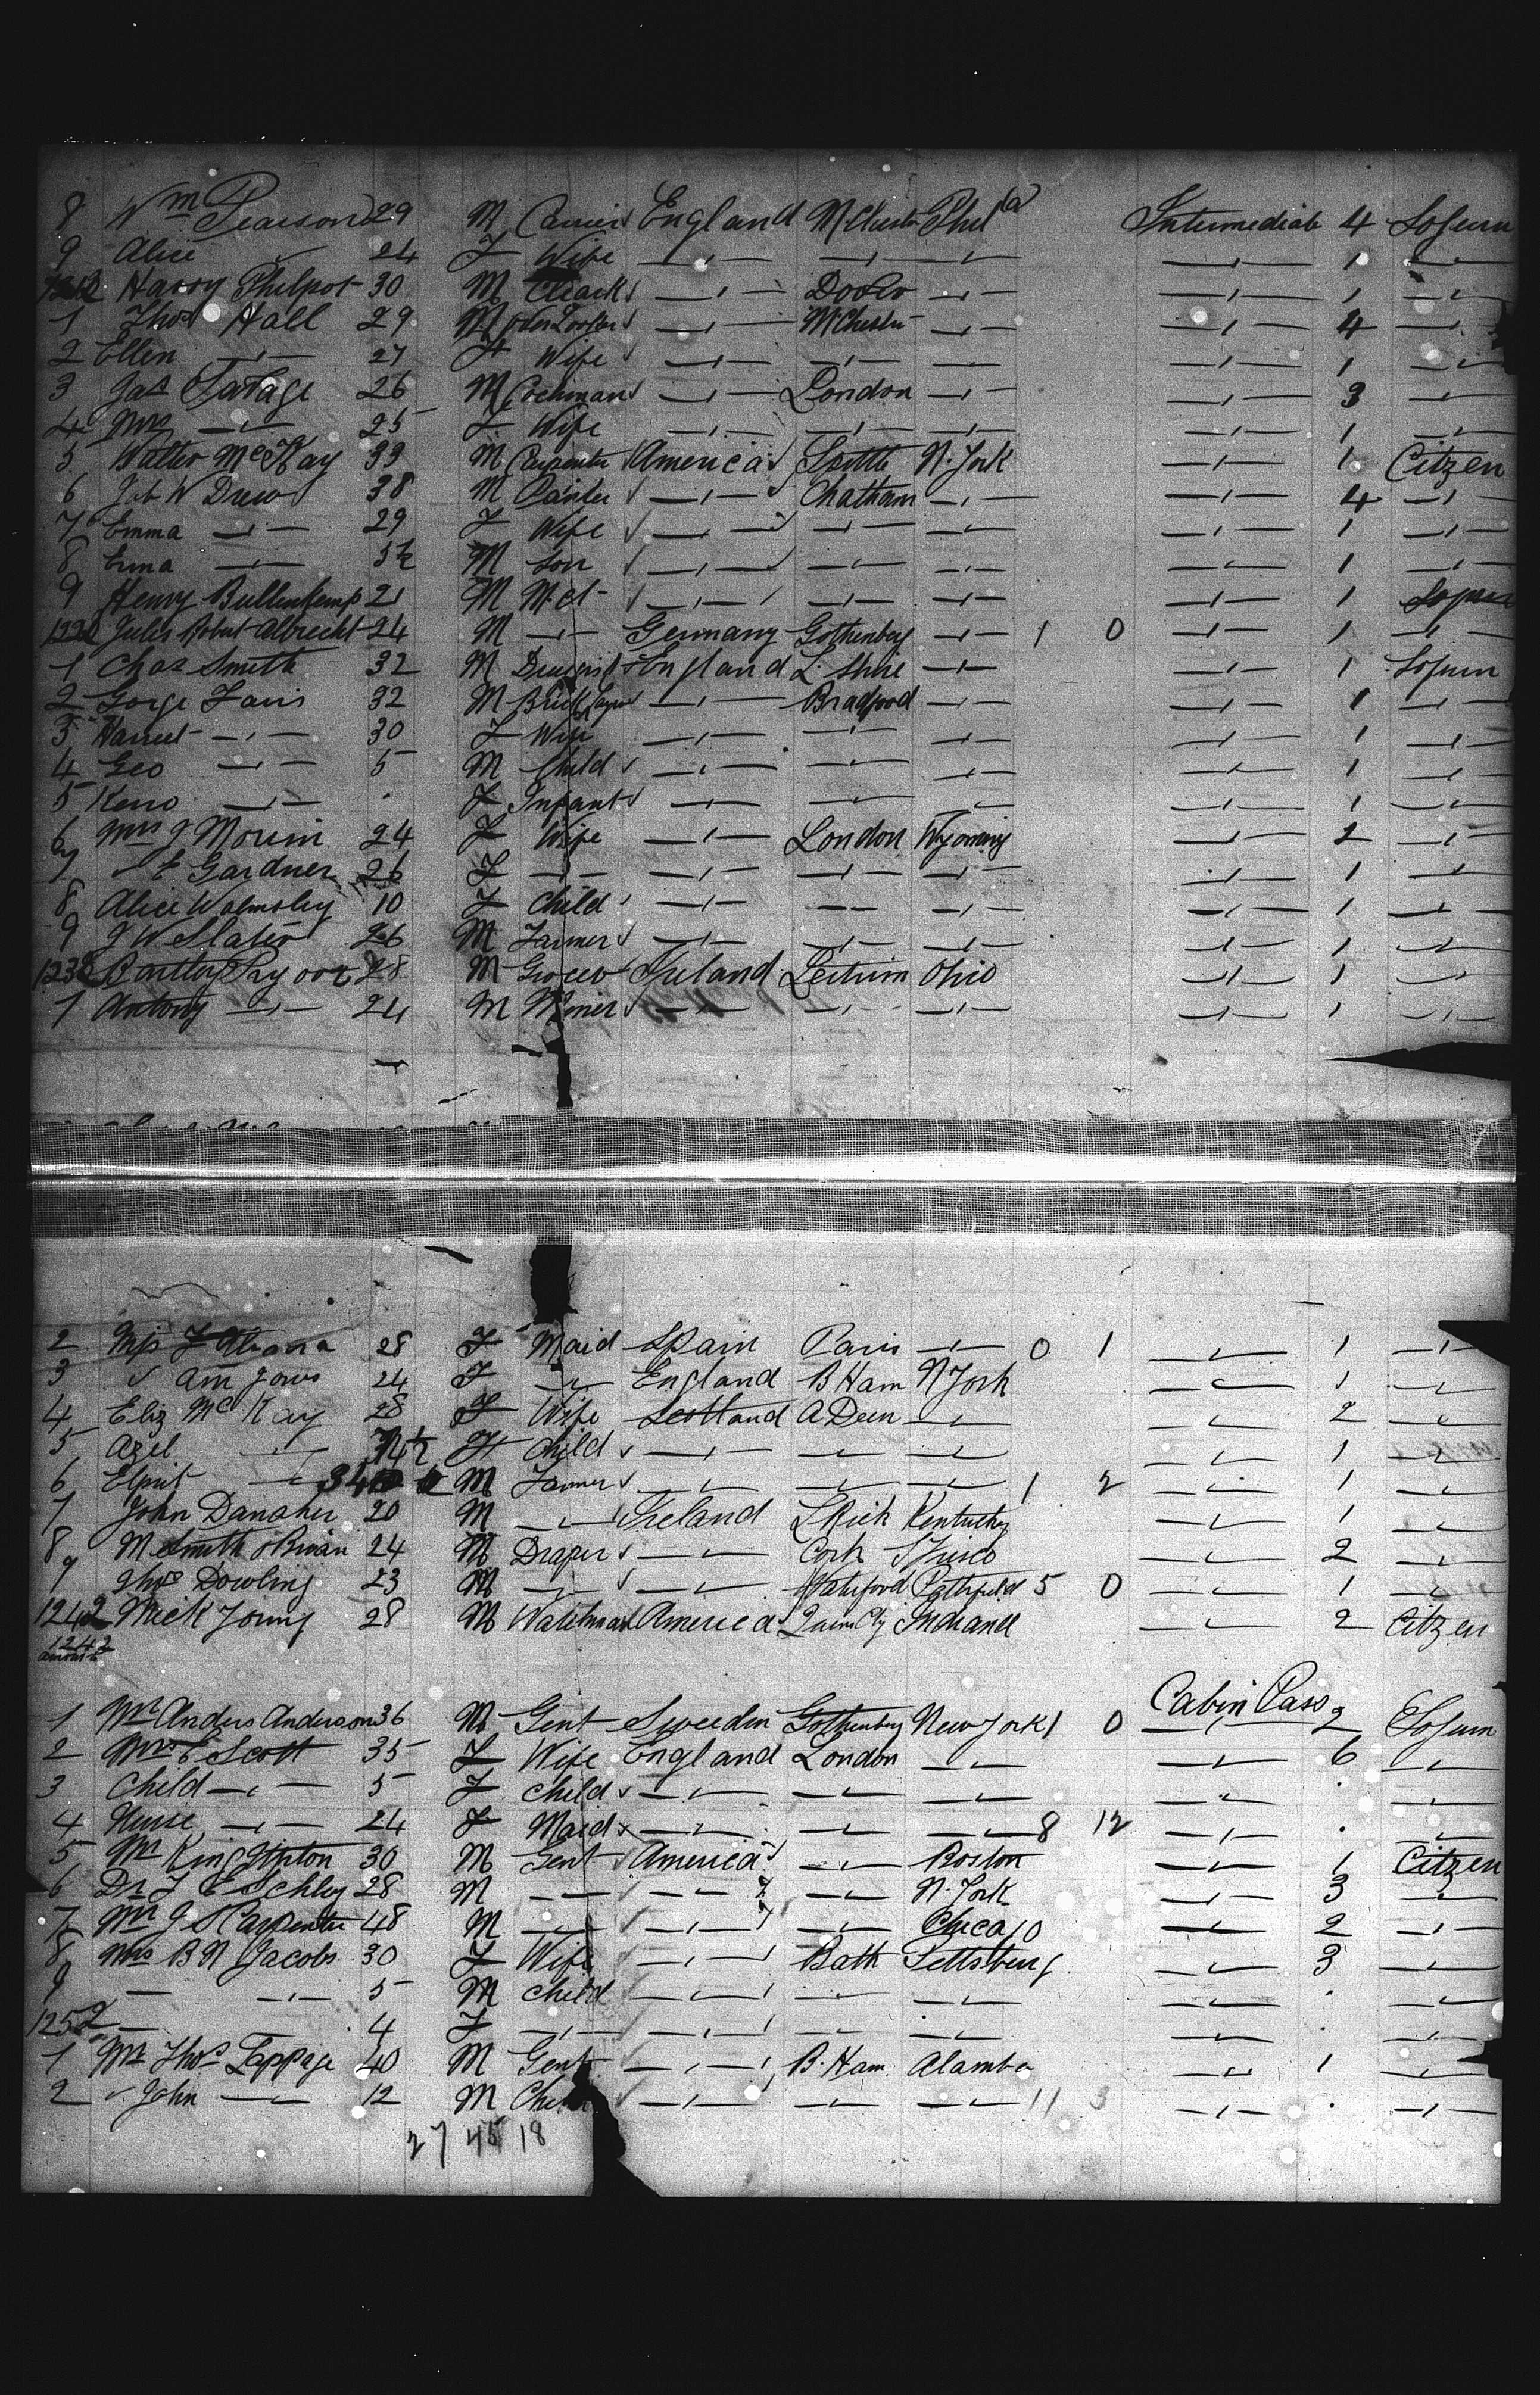 8 Wm Pearson 29 M Carrier England MChester Phila Intermediate 4 Sojurn
9 Alice 24 F Wife —"— —"— —"— —"— 1 —"—
Harry Philpot 30 M —"— —"— —"— 1 —"—
1 Thos Hall 29 M —"— MChester —"— —"— 4 —"—
2 Ellen —"— 27 F Wife —"— —"— —"— —"— 1 —"—
3 Jas Savage 26 M Cochman —"— London —"— —"— 3 —"—
4 Mrs —"— 25 F Wife —"— —"— —"— —"— 1 —"—
5 Walter McKay 33 M Carpenter America N. York —"— 1 Citzen
6 Job W Drew 38 M Painter —"— Chatham —"— —"— 4 —"—
7 Emma —"— 29 F Wife —"— —"— —"— —"— 1 —"—
8 Erna —"— 5½ M Son —"— —"— —"— —"— 1 —"—
9 Henry Bullenkemp 21 M —"— —"— —"— —"— 1 Sojurn
Jules Robert Albrecht 24 M —"— Germany Gothenberg —"— 1 0 —"— 1 —"—
1 Chas Smith 32 M Drugist England L. Shire —"— —"— 1 Sojurn
2 Gorge Faris 32 M Brick Layer —"— Bradford —"— —"— 1 —"—
3 Harriet —"— 30 F Wife —"— —"— —"— —"— 1 —"—
4 Geo —"— 5 M Child —"— —"— —"— —"— 1 —"—
5 Keno —"— F Infant —"— —"— —"— —"— 1 —"—
6 Mrs J Morrin 24 F Wife —"— London Wyoming —"— 2 —"—
7 " E Gardner 26 F —"— —"— —"— —"— —"— 1 —"—
8 Alice Walmsley 10 F Child —"— —"— —"— —"— 1 —"—
9 J W Slater 26 M Farmer —"— —"— —"— —"— 1 —"—
Bartley Pryoor 28 M Grocer Ireland Leitrim Ohio —"— 1 —"—
1 Antony —"— 24 M Miner —"— —"— —"— —"— 1 —"—
2 28 F Maid Spain Paris —"— 0 1 —"— 1 —"—
3 " Ann Jows 24 F —"— England B Ham N York —"— 1 —"—
4 Eliz Mc Kay 28 F Wife Scotland A Deen —"— —"— 2 —"—
5 Azel —"— Child —"— —"— —"— —"— 1 —"—
6 —"— M Farmer —"— —"— —"— 1 2 —"— 1 —"—
7 John Danaher 20 M —"— Ireland LRick Kentucky —"— 1 —"—
8 M Smith OBrian 24 M Draper —"— Cork SFrisco —"— 2 —"—
9 Thos Dowling 23 M —"— —"— Waterford 5 0 —"— 1 —"—
1242 Mick Young 28 M Watchman America Indiana —"— 2 Citzen
1242
Cabin Pass
1 Mr Anders Anderson 36 M Gent Sweeden Gothenberg New York 1 0 —"— 2 Sojurn
2 Mrs E Scott 35 F Wife England London —"— —"— 6 —"—
3 Child —"— 5 F Child —"— —"— —"— —"— —"—
4 Nurse —"— 24 F Maid —"— —"— —"— 8 12 —"— —"—
5 Mr King Upton 30 M Gent America —"— Boston —"— 1 Citzen
6 Dr J E Schley 28 M —"— —"— —"— N. York —"— 3 —"—
7 Mr J S Carpenter 48 M —"— —"— —"— Chicago —"— 2 —"—
8 Mrs B N Jacobs 30 F Wife —"— Bath Pettsburg —"— 3 —"—
9 — —"— 5 M Child —"— —"— —"— —"— —"—
1252 — —"— 4 F —"— —"— —"— —"— —"— —"—
1 Mr Thos Lappage 40 M Gent —"— B. Ham Alamba —"— 1 —"—
2 " John —"— 12 M Child —"— —"— —"— 11 3 —"— —"—
27 45 18